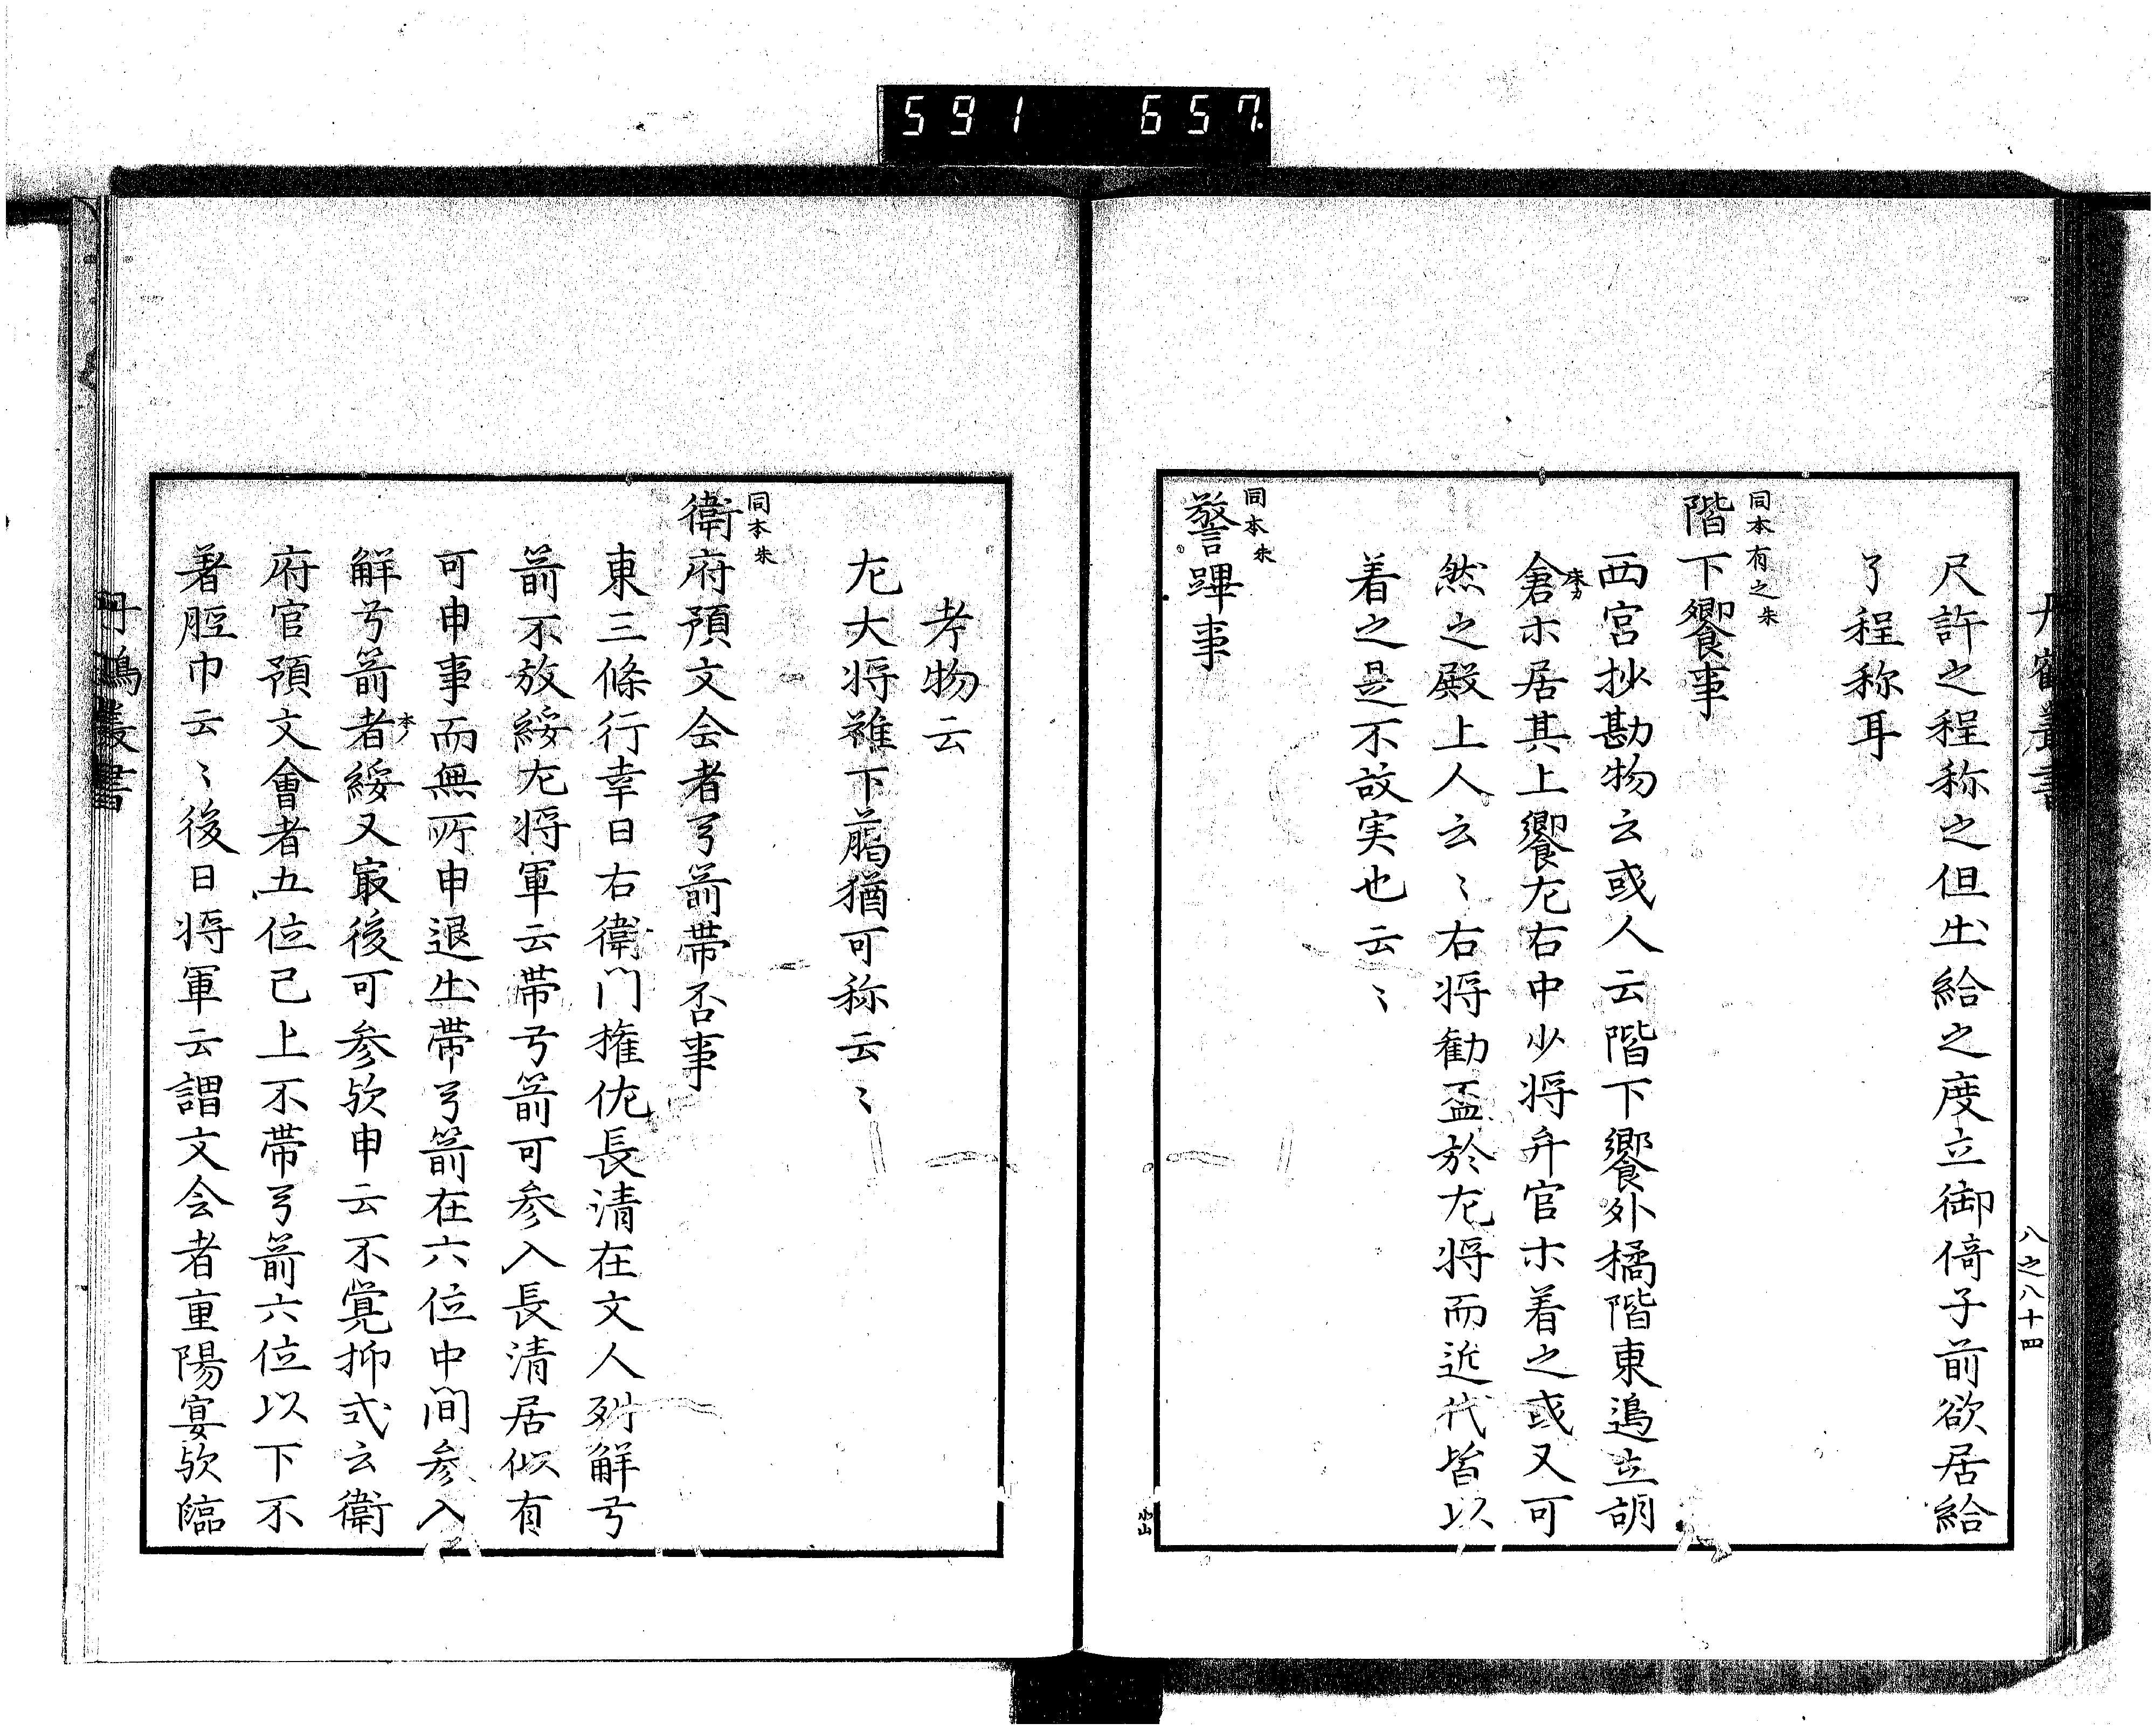 591 657
丹鶴叢書
八之八十四
尺許之程称之但出給之度立御倚子前欲居給
了程称耳
同本有之朱
階下饗事
西宮抄勘物云或人云階下饗外橘階東邊立胡
倉ホ居其上饗左右中少将弁官ホ着之或又可
床カ
然之殿上人云〻右将勧盃於左将而近代皆以
着之是不故実也云〻
同本朱
警蹕事
小山
考物云
左大将雖下臈猶可称云〻
同本朱
衛府預文会者弓箭帯否事
東三條行幸日右衛門権佐長清在文人列解弓
箭不放綏左将軍云帯弓箭可参入長清居似有
可申事而無所申退出帯弓箭在六位中間参入
解弓箭者綏又冣後可参欤申云不覚抑式云衛
本ノ
府官預文會者五位已上不帯弓箭六位以下不
著脛巾云〻後日将軍云謂文会者重陽宴欤臨
丹鶴叢書